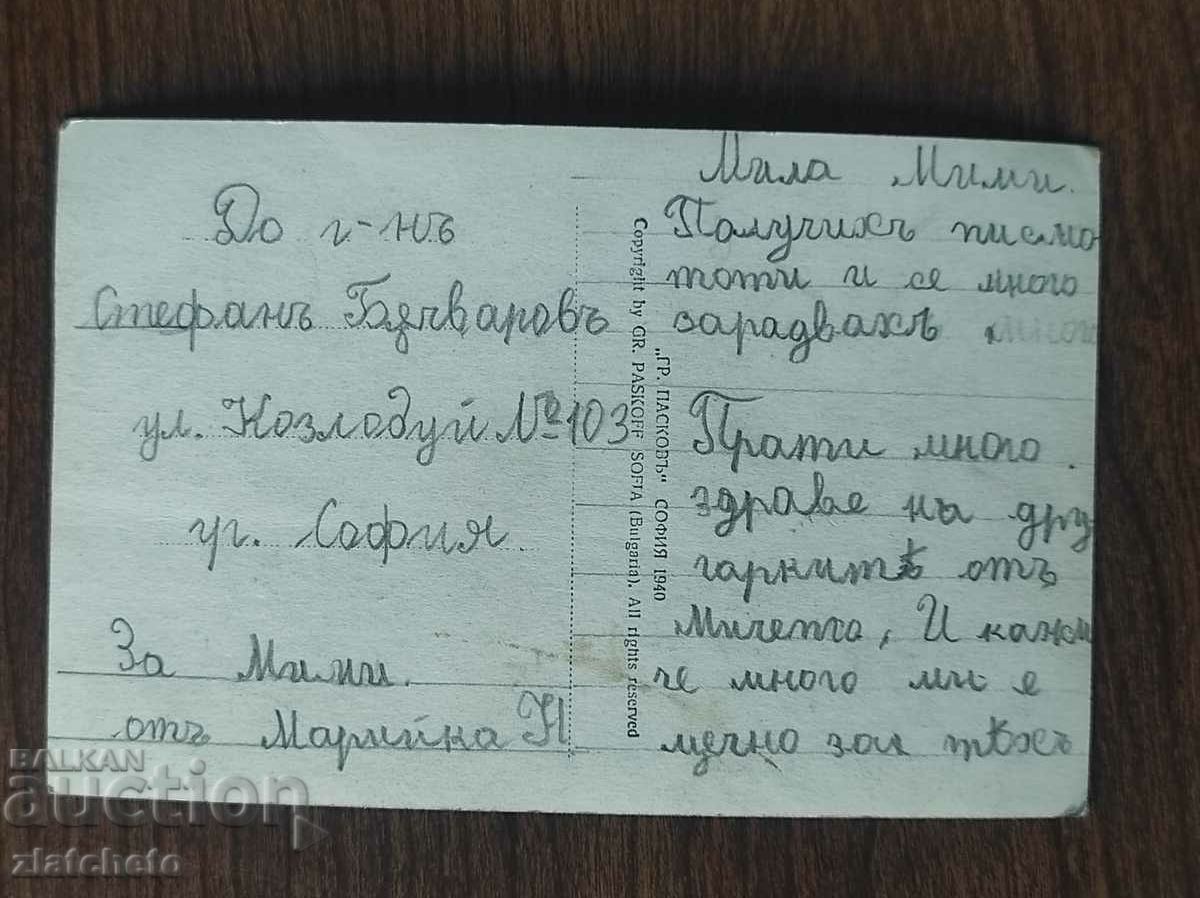 До г-нъ
Стефанъ Бъчваровъ
ул. Козлодуй № 103
гр. София
За Мими.
отъ Марийка Н
Copyright by GR. PASKOFF SOFIA (Bulgaria). All rights reserved
„ГР. ПАСКОВЪ“ СОФИЯ 1940
Мила Мими.
Получихъ писмо
тоти и се много
зарадвахъ много
Прати много
здраве на дру
гарнитѣ отъ
Мичетка, И кажи
че много ми е
мъчно зая тѣхъ
BALKAN
auction
zlatcheto